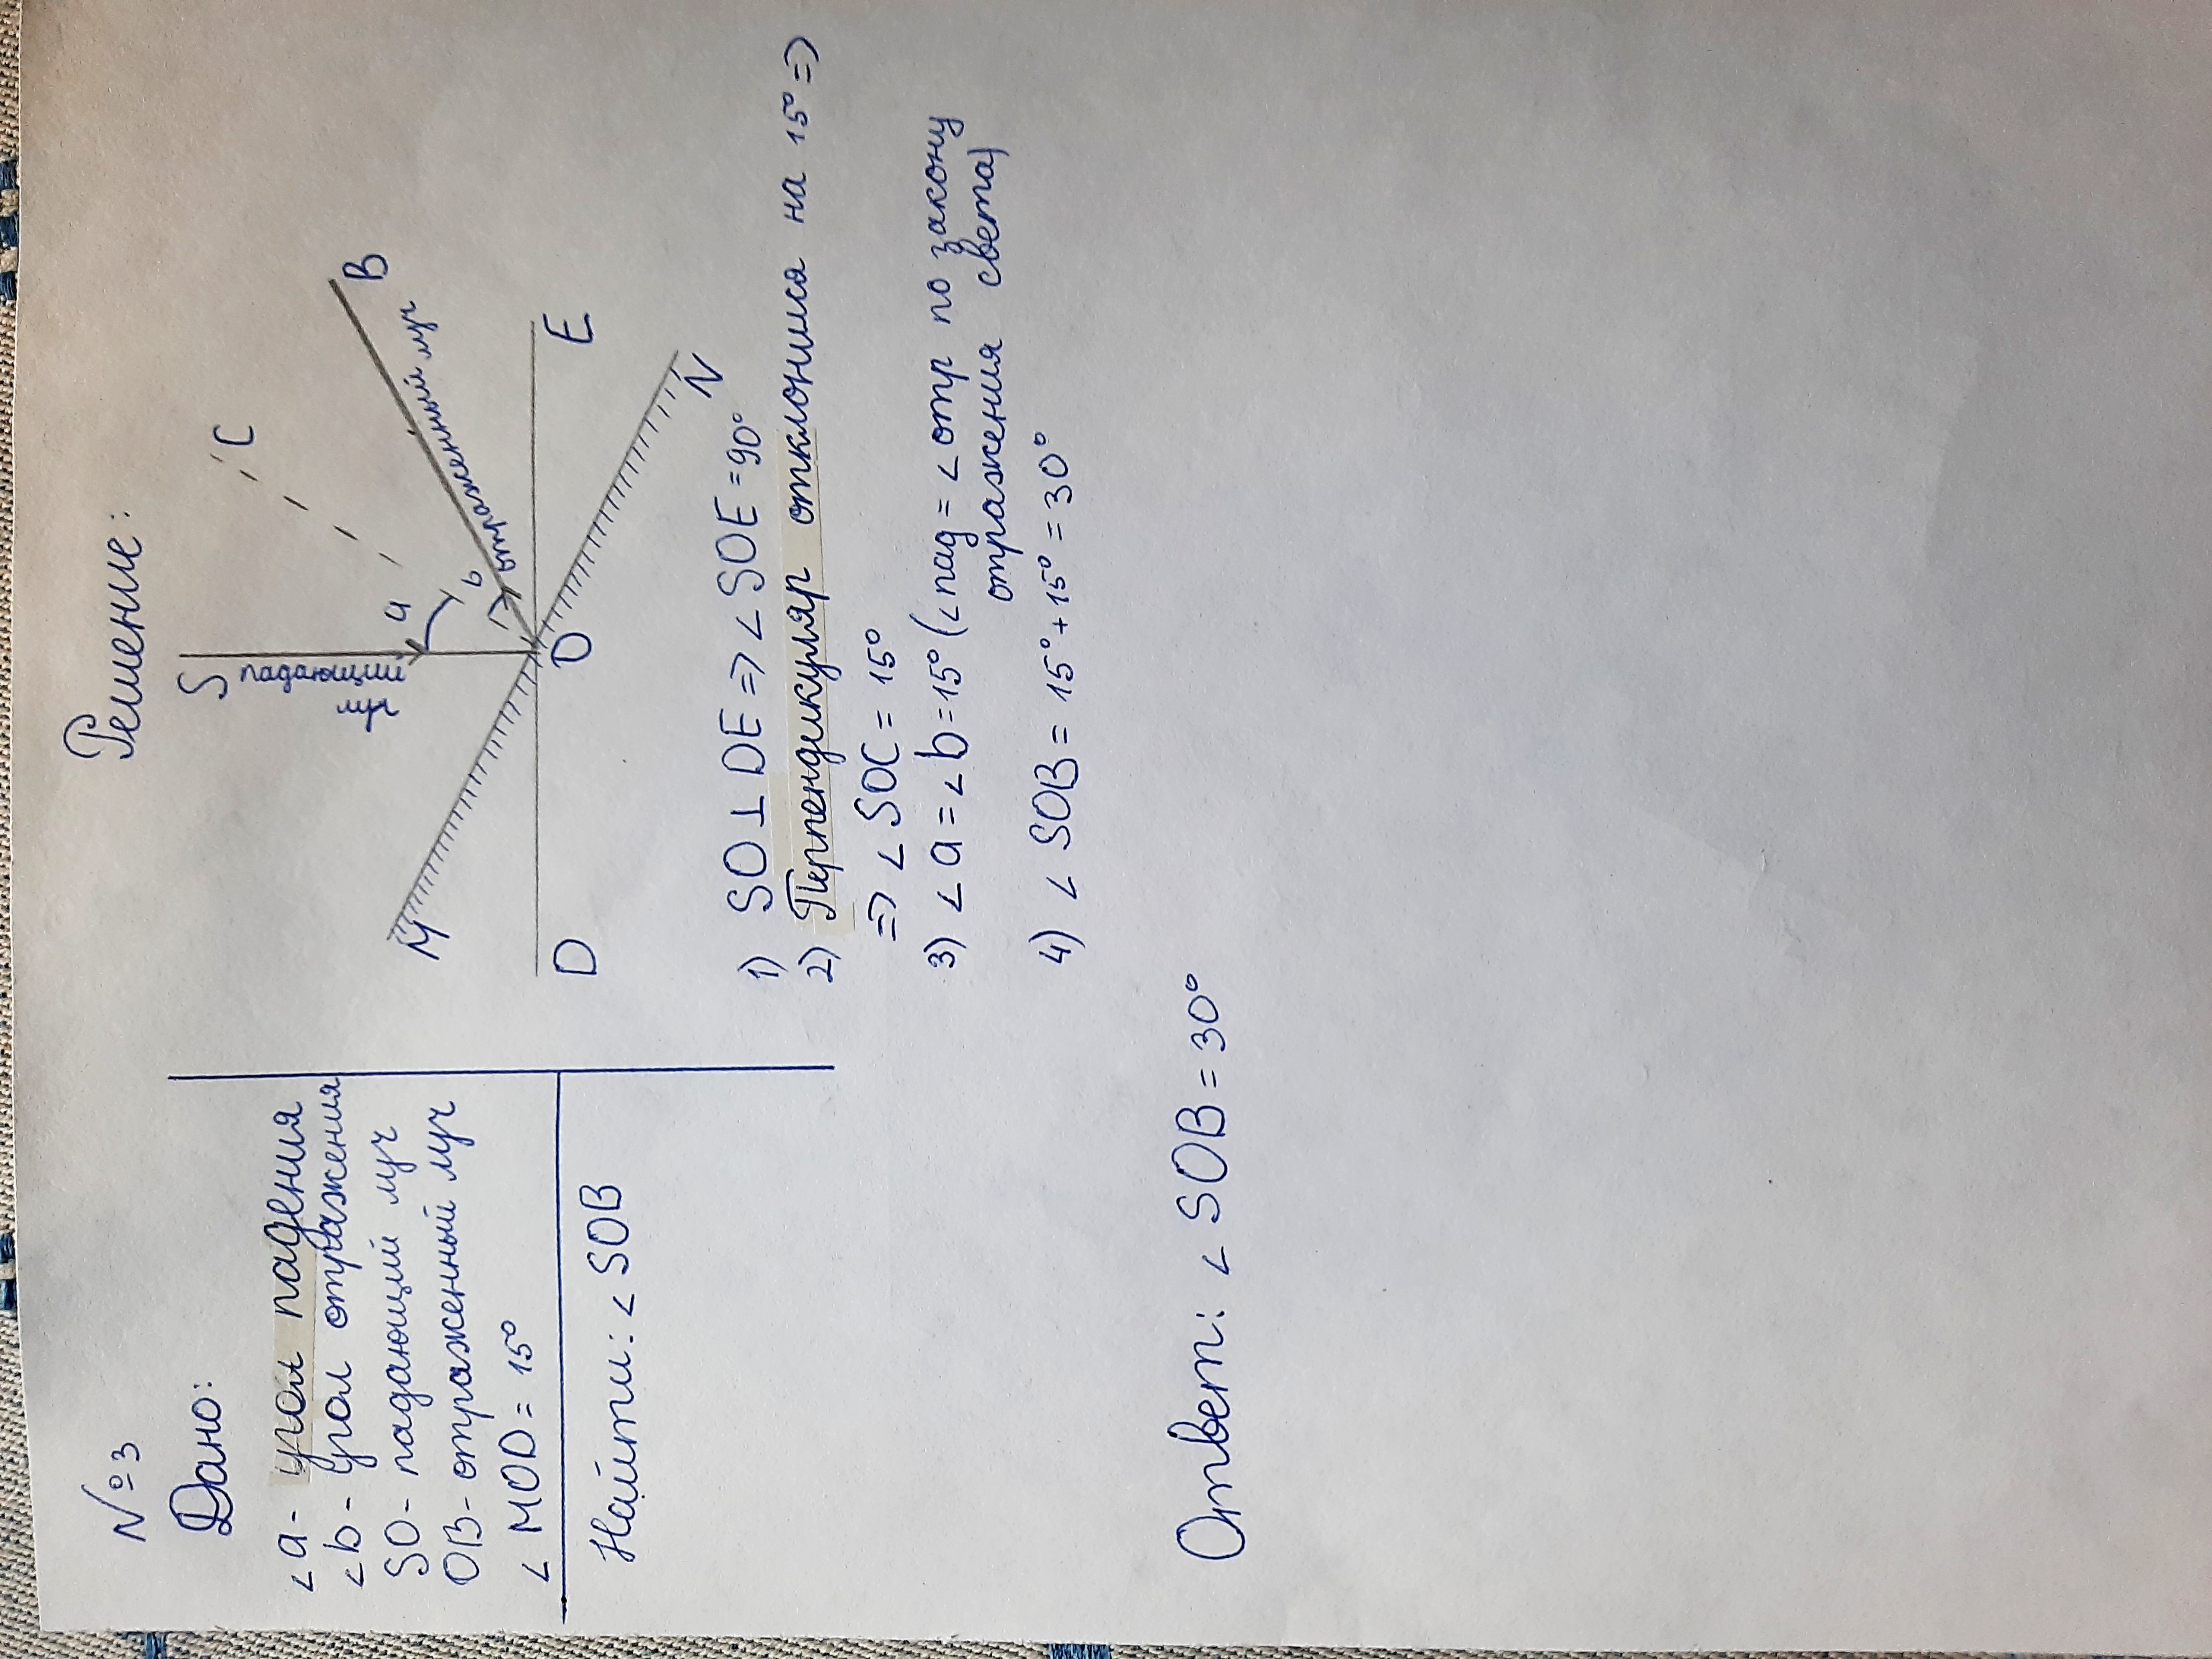 №3
Дано:
∠a- угол падения
∠b- угол отражения
SO- падающий луч
OB- отраженный луч
∠MOD = 15°
Найти: ∠SOB
Решение:
S
падающий
луч
a
b
C
B
отраженный луч
M
O
N
D
E
1) SO⊥DE => ∠SOE = 90°
2) Перпендикуляр отклонился на 15° =>
=> ∠SOC = 15°
3) ∠a = ∠b = 15° (∠пад = ∠отр по закону
отражения света)
4) ∠SOB = 15° + 15° = 30°
Ответ: ∠SOB = 30°